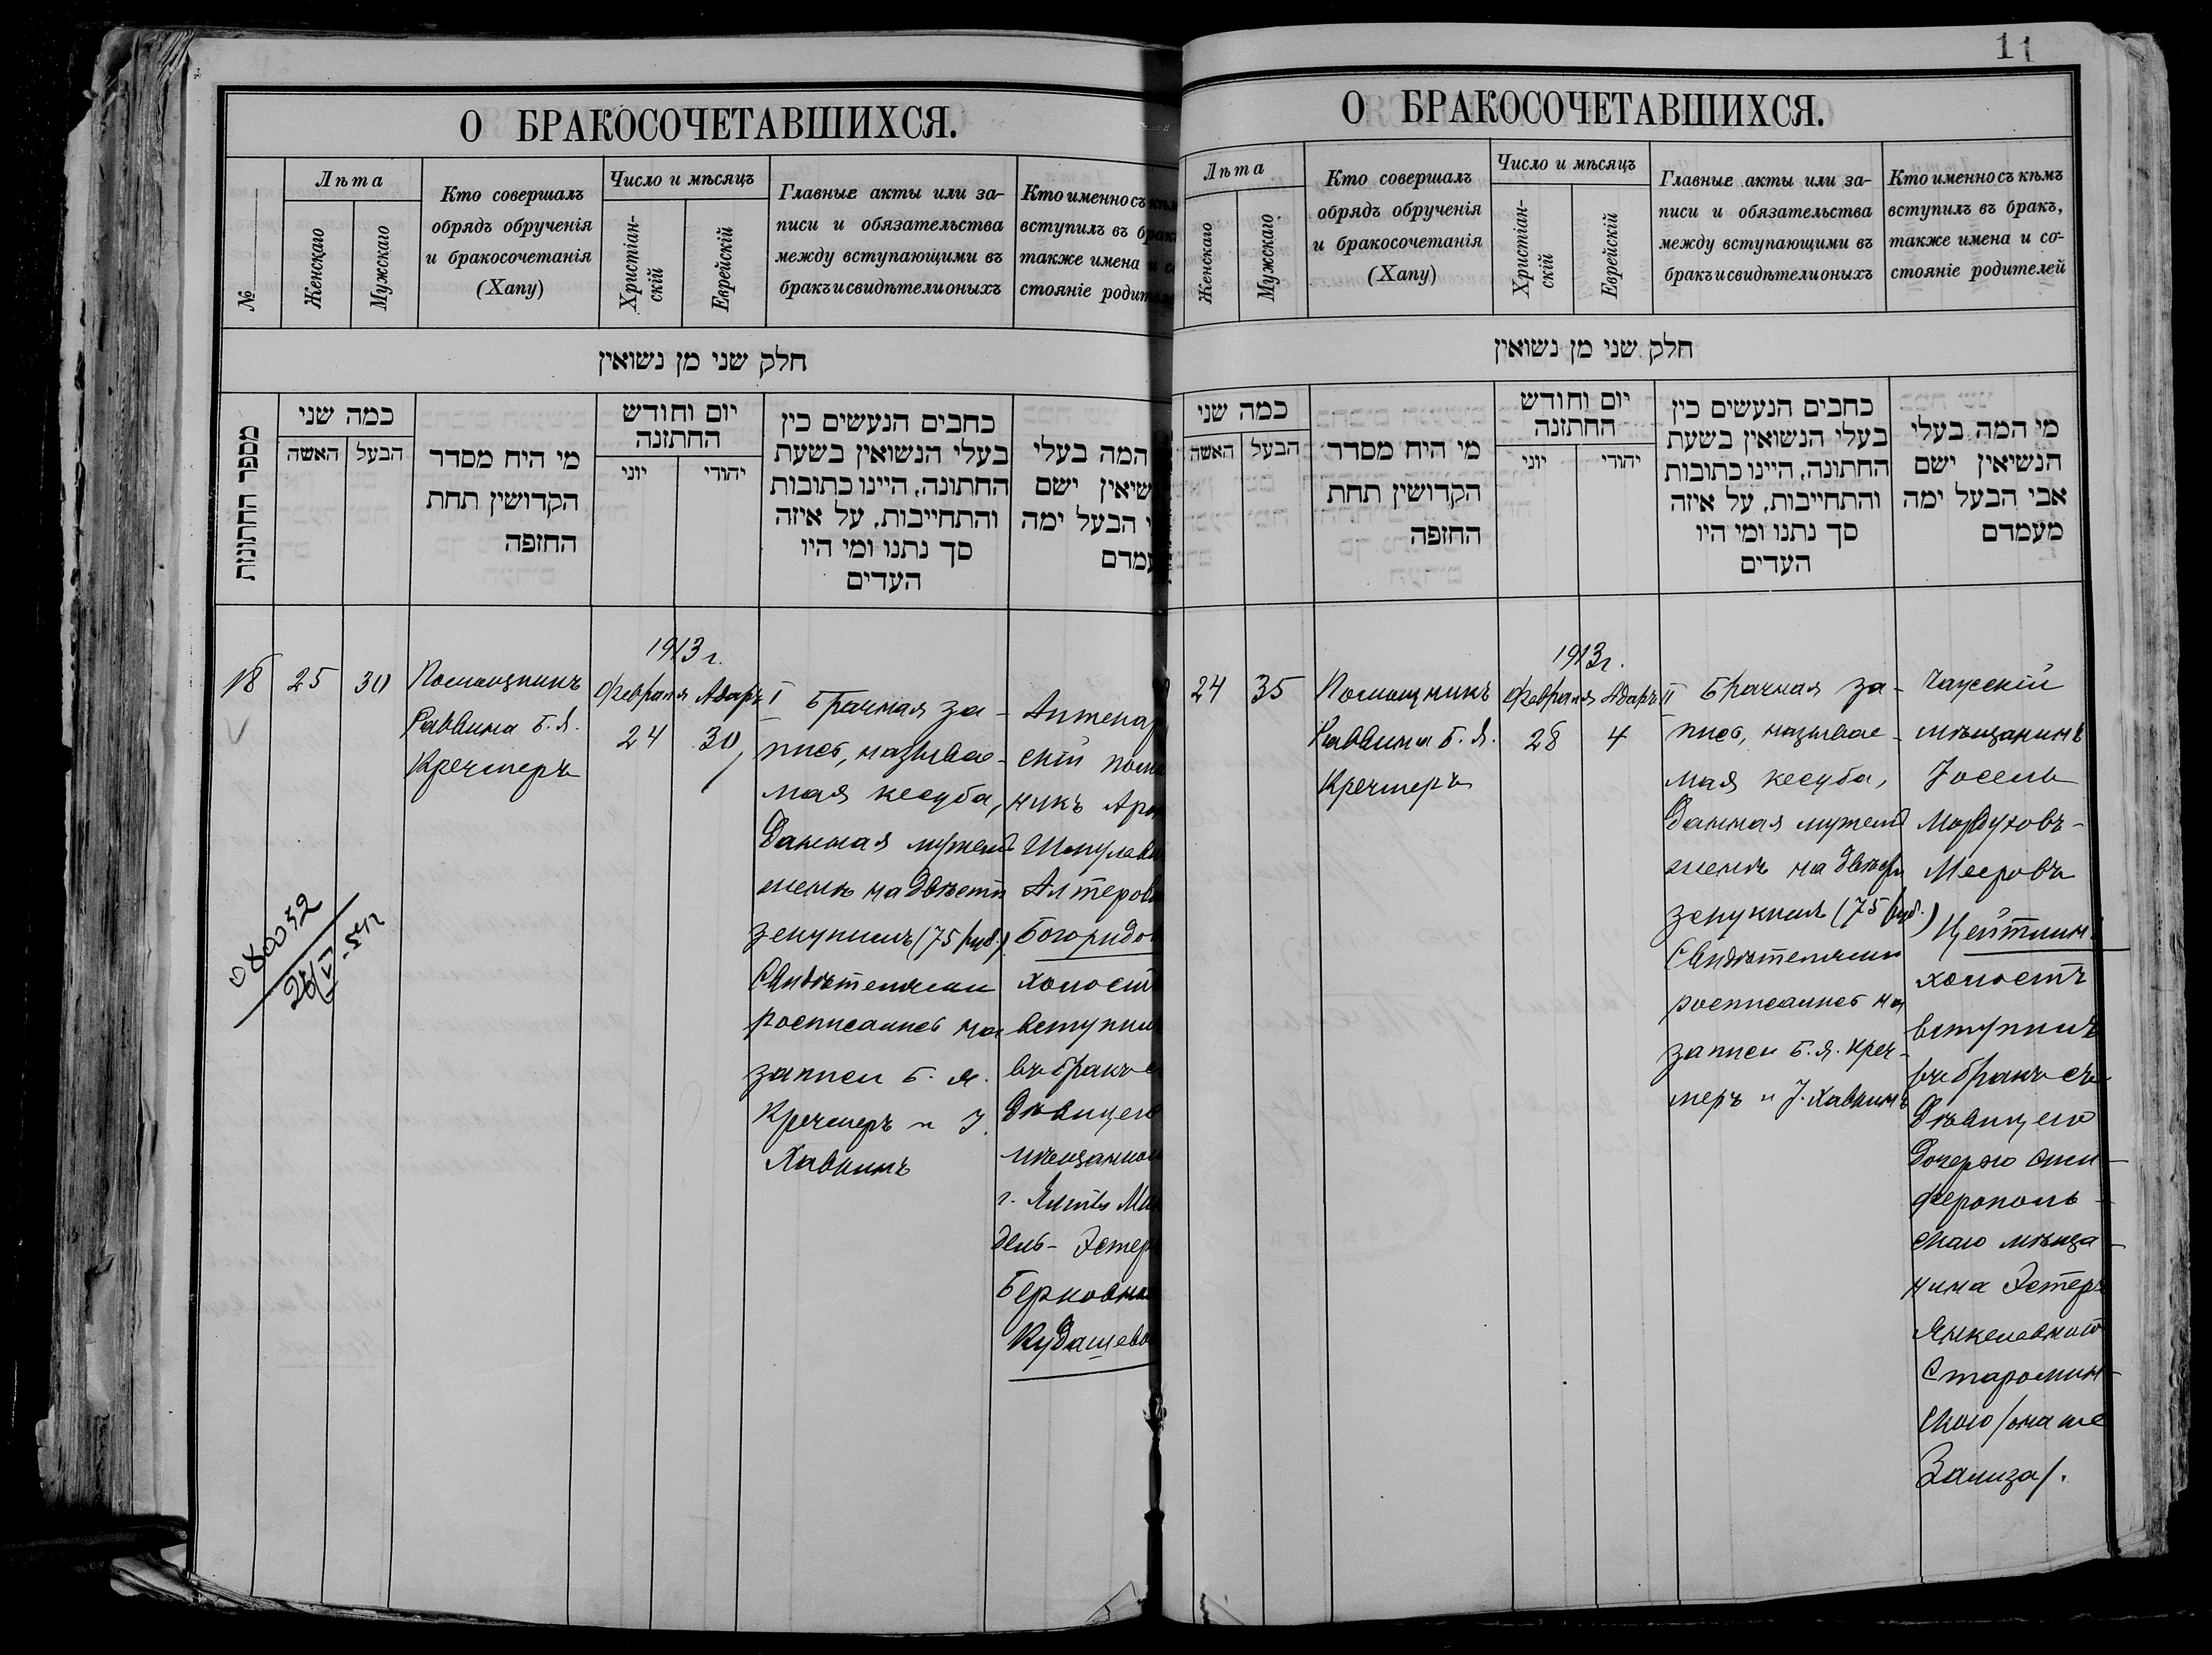 11
О БРАКОСОЧЕТАВШИХСЯ.
№
Лѣта
Женскаго
Мужскаго
Кто совершалъ
обрядъ обрученія
и бракосочетанія
(Хапу)
Число и мѣсяцъ
Христіан-
скій
Еврейскій
Главные акты или за-
писи и обязательства
между вступающими въ
бракъ и свидѣтели оныхъ
Кто именно съ
вступилъ въ
также имена
стояніе
חלק שני מן נשואין
מספר החתונות
כמה שני
האשה
הבעל
מי היח מסדר
הקדושין תחת
החזפה
יום וחודש
החתזנה
יוני
יהודי
כחבים הנעשים כין
בעלי הנשואין בשעת
החתונה, היינו כתובות
והתחייבות, על איזה
סך נתנו ומי היו
העדים
המה בעלי
שיאין ישם
הבעל ימה
עמדם
18
25
30
Помощникъ
Раввина Б. Я.
Кречмеръ
1913 г.
Февраля
24
Адаръ I
30
Брачная за-
пись, называе-
мая кесуба,
данная мужемъ
женѣ на двѣсти
зекукимъ (75 руб.)
Свидѣтелями
росписались на
записи Б. Я.
Кречмеръ и I.
Хавкинъ
скій
никъ
вступил
въ бракъ
дѣвицею
г. Ялты
дель- Эстер
Берковна
Кудашево
080032
О БРАКОСОЧЕТАВШИХСЯ.
Лѣта
Женскаго
Мужскаго
Кто совершалъ
обрядъ обрученія
и бракосочетанія
(Хапу)
Число и мѣсяцъ
Христіан-
скій
Еврейскій
Главные акты или за-
писи и обязательства
между вступающими въ
бракъ и свидѣтели оныхъ
Кто именно съ кѣмъ
вступилъ въ бракъ,
также имена и со-
стояніе родителей
חלק שני מן נשואין
כמה שני
האשה
הבעל
מי היח מסדר
הקדושין תחת
החזפה
יום וחודש
החתזנה
יוני
יהודי
כחבים הנעשים כין
בעלי הנשואין בשעת
החתונה, היינו כתובות
והתחייבות, על איזה
סך נתנו ומי היו
העדים
מי המה בעלי
הנשיאין ישם
אבי הבעל ימה
מעמדם
24
35
Помощникъ
Раввина Б. Я.
Кречмеръ
1913 г.
Февраля
28
Адаръ II
4
Брачная за-
пись, называе-
мая кесуба,
данная мужемъ
женѣ на двѣсти
зекукимъ (75 руб.)
Свидѣтелями
росписались на
записи Б. Я. Креч-
меръ и I. Хавкинъ
Чаусскій
мѣщанинъ
Iосель
Мордуховъ-
Мееровъ
Цейтлинъ
холостъ
вступилъ
въ бракъ съ
дѣвицею
дочерью сим-
ферополь-
скаго мѣща-
нина Эстеръ
Янкелевной
Старомин-
ского /она же
Зализа/.